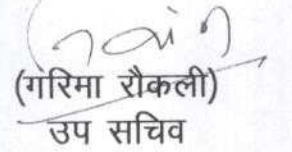 (गरिमा रौकली)
उप सचिव